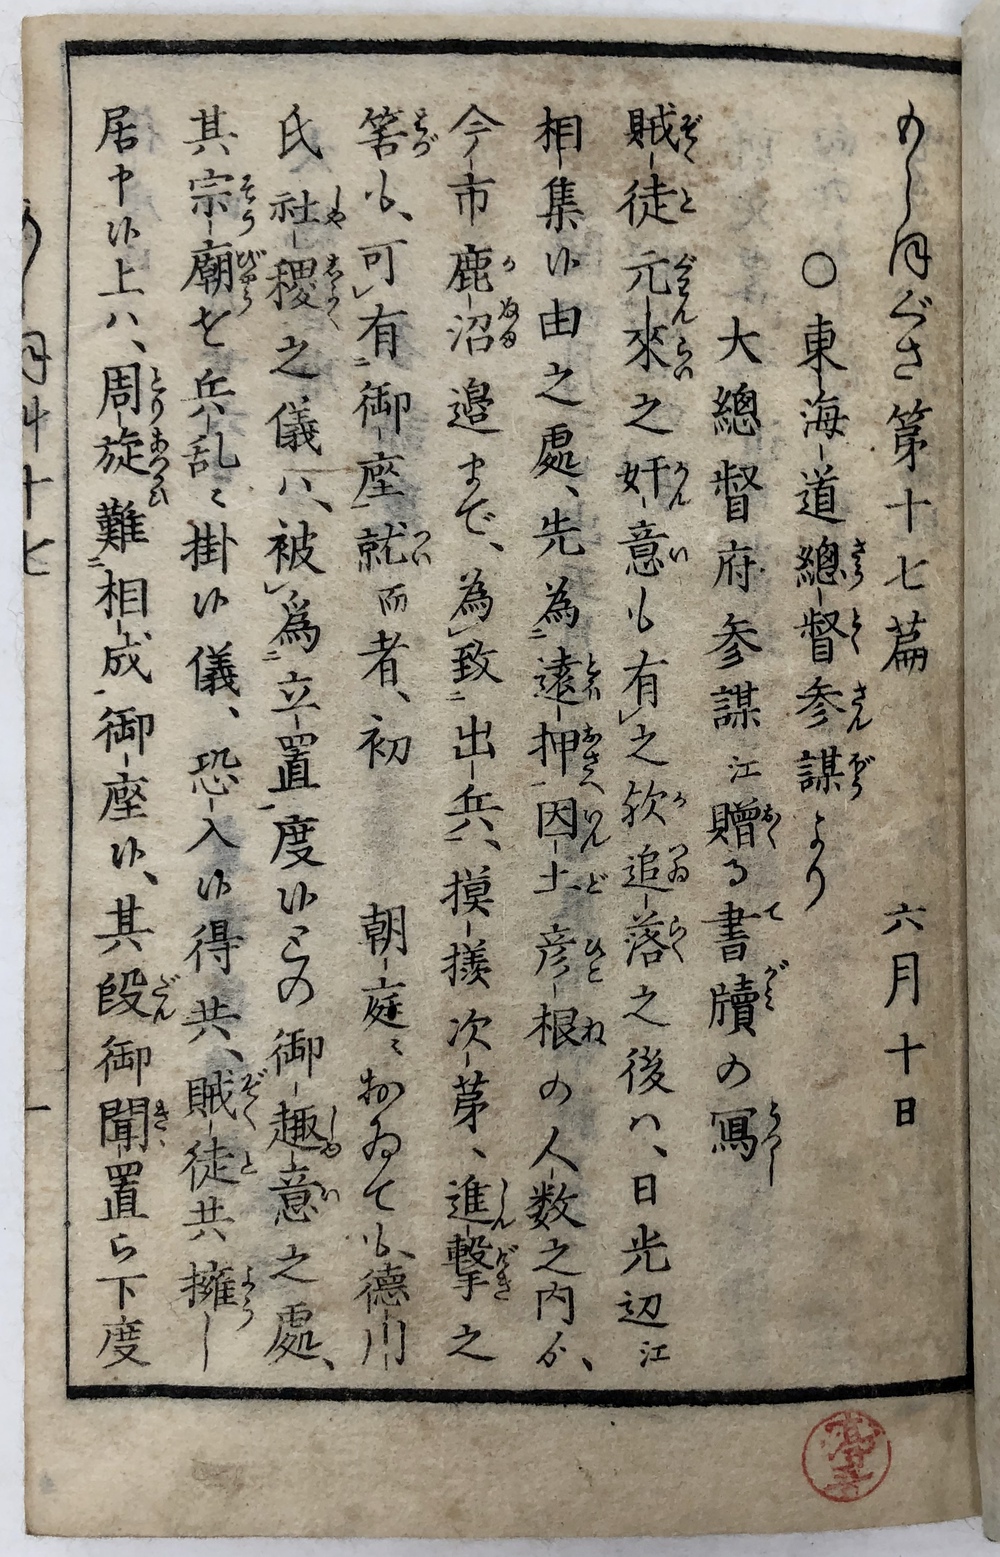 もしほぐさ第十七篇　六月十日
○東海道總督参謀より
大總督府参謀江贈る書牘の寫
賊徒元來之奸意も有之欤追落之後ハ、日光辺江
相集候由之處、先為遠押因土彦根の人数之内ゟ、
今市鹿沼邉まで、為致出兵、摸様次第、進撃之
筈も、可有御座就而者、初　朝庭ニおゐても、德川
氏社稷之儀ハ、被爲立置度候との御趣意之處、
其宗廟を兵乱ニ掛候儀、恐入候得共、賊徒共擁し
居申候上ハ、周旋難相成御座候、其段御聞置ら下度
十七
一